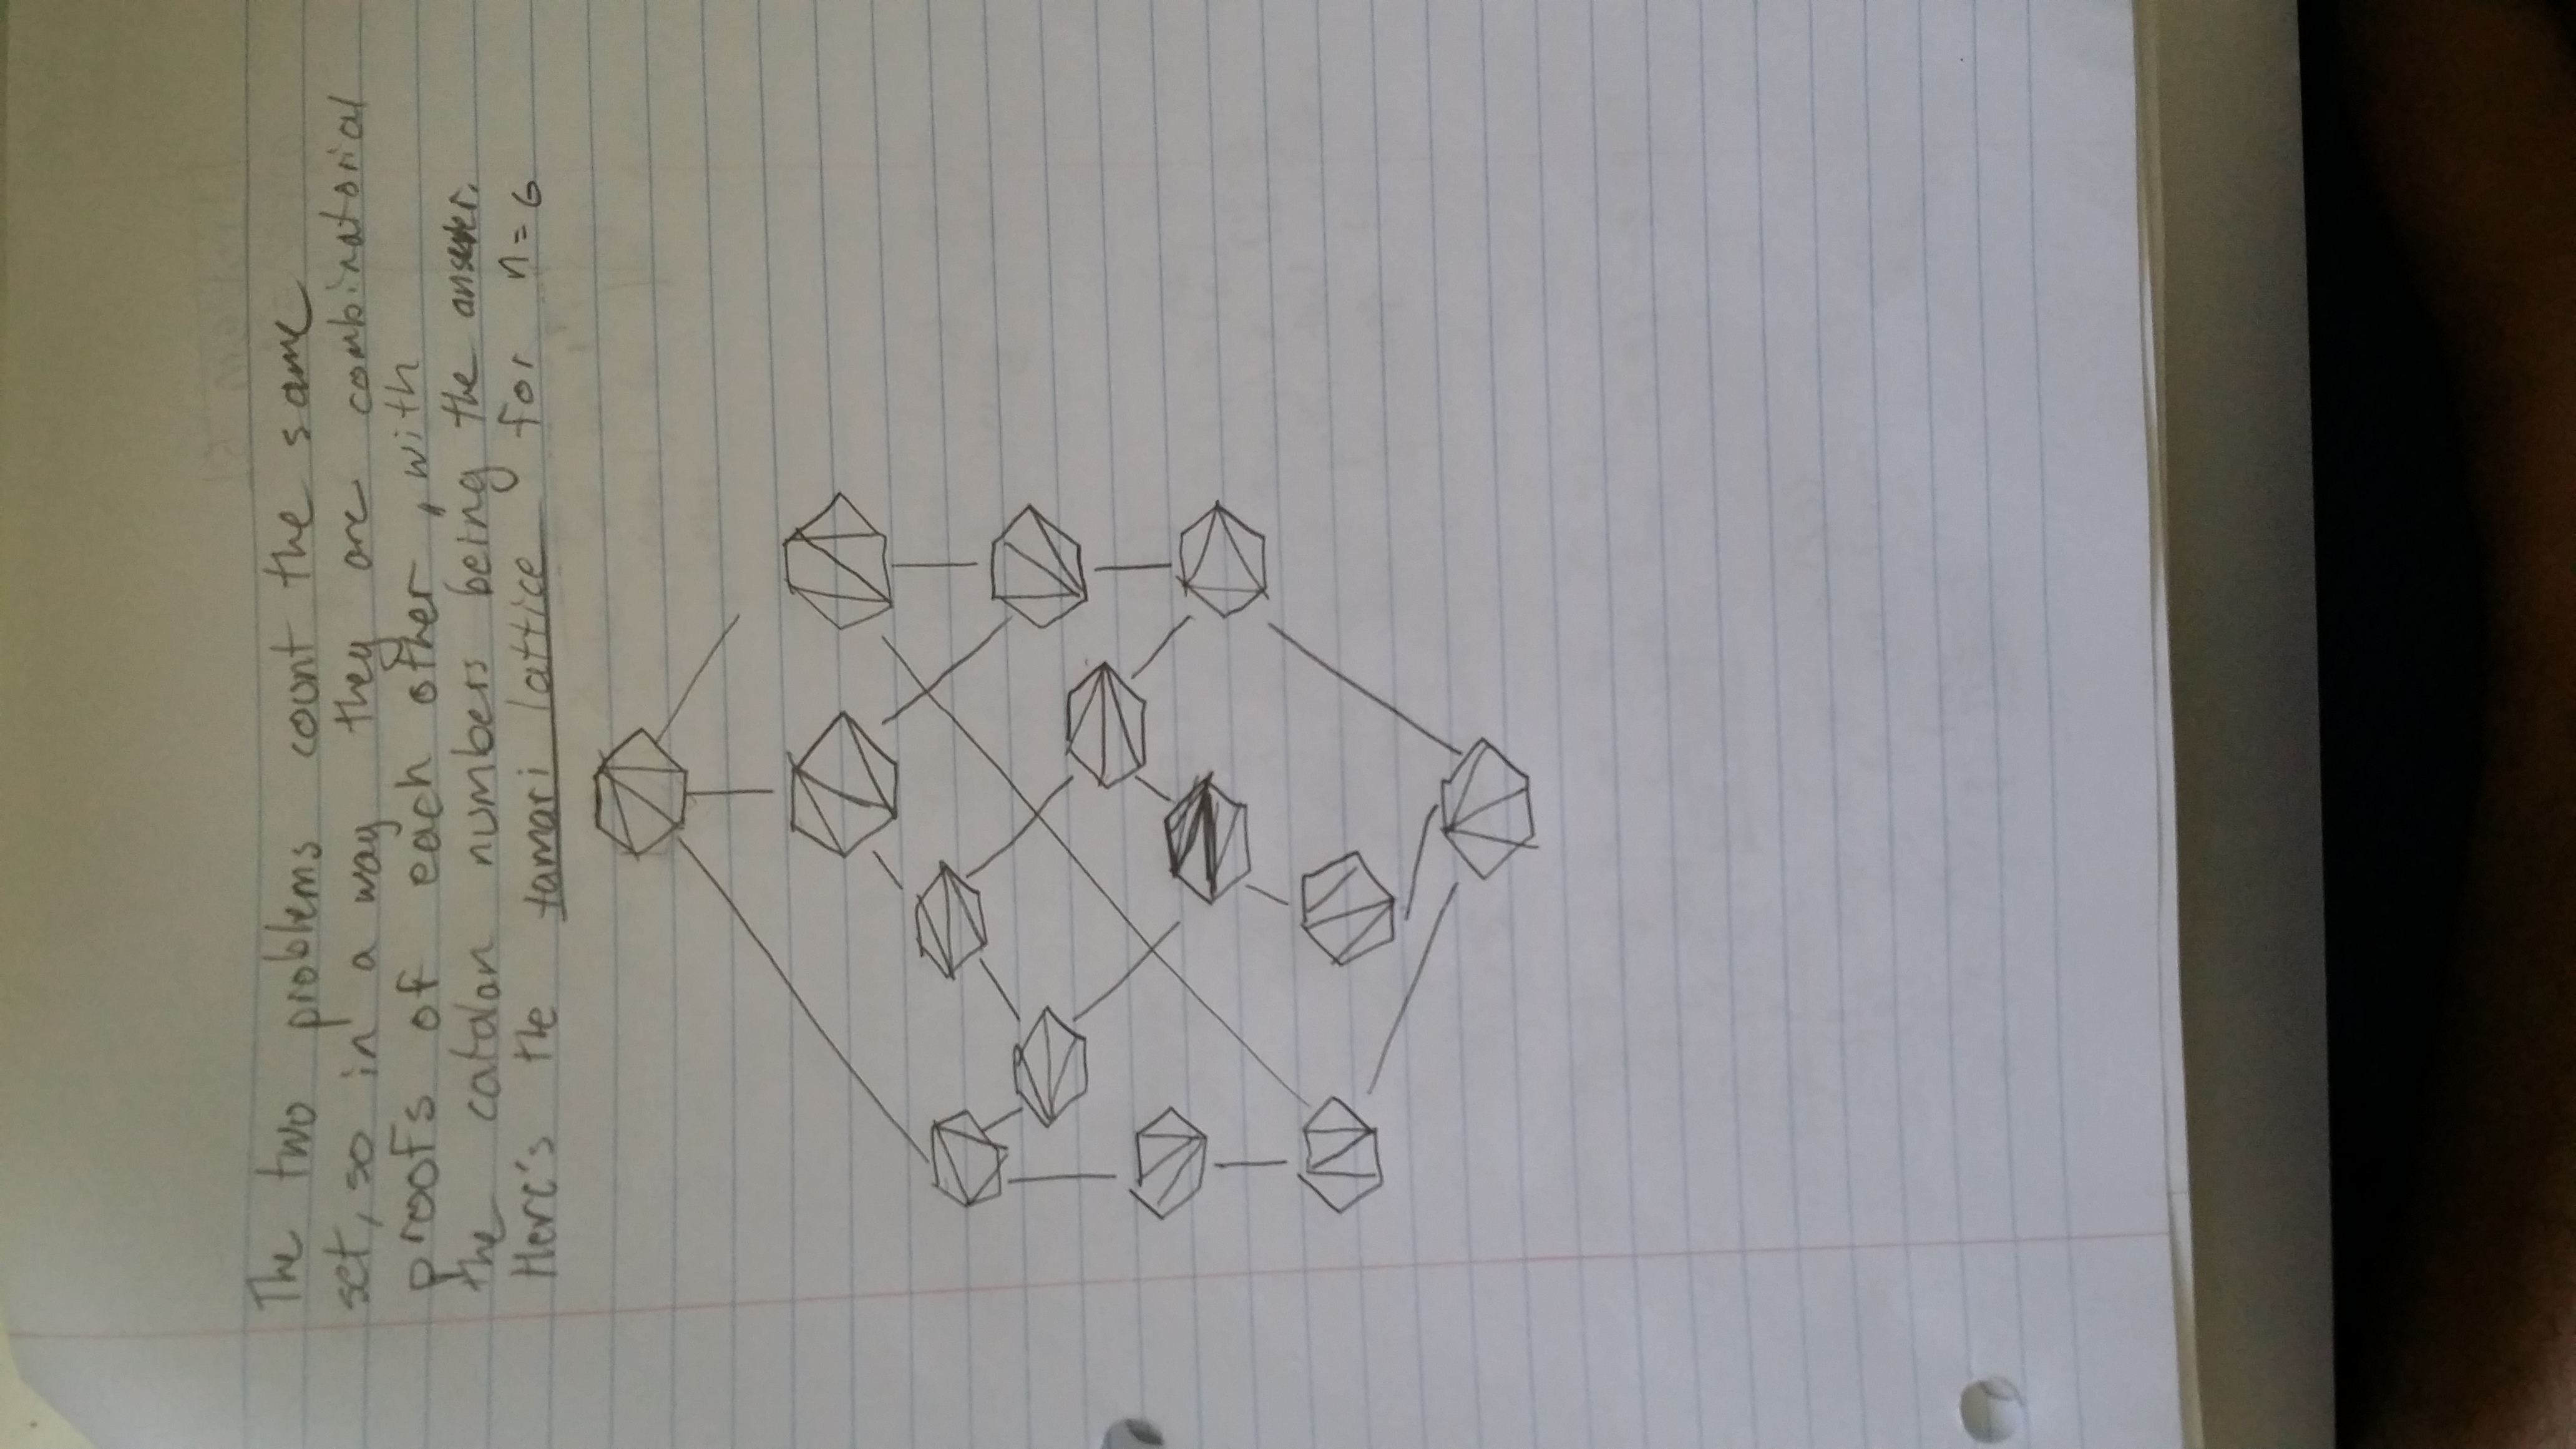 The two problems count the same
set, so in a way they are combinatorial
proofs of each other, with
the catalan numbers being the answer.
Here's the tamari lattice for n=6